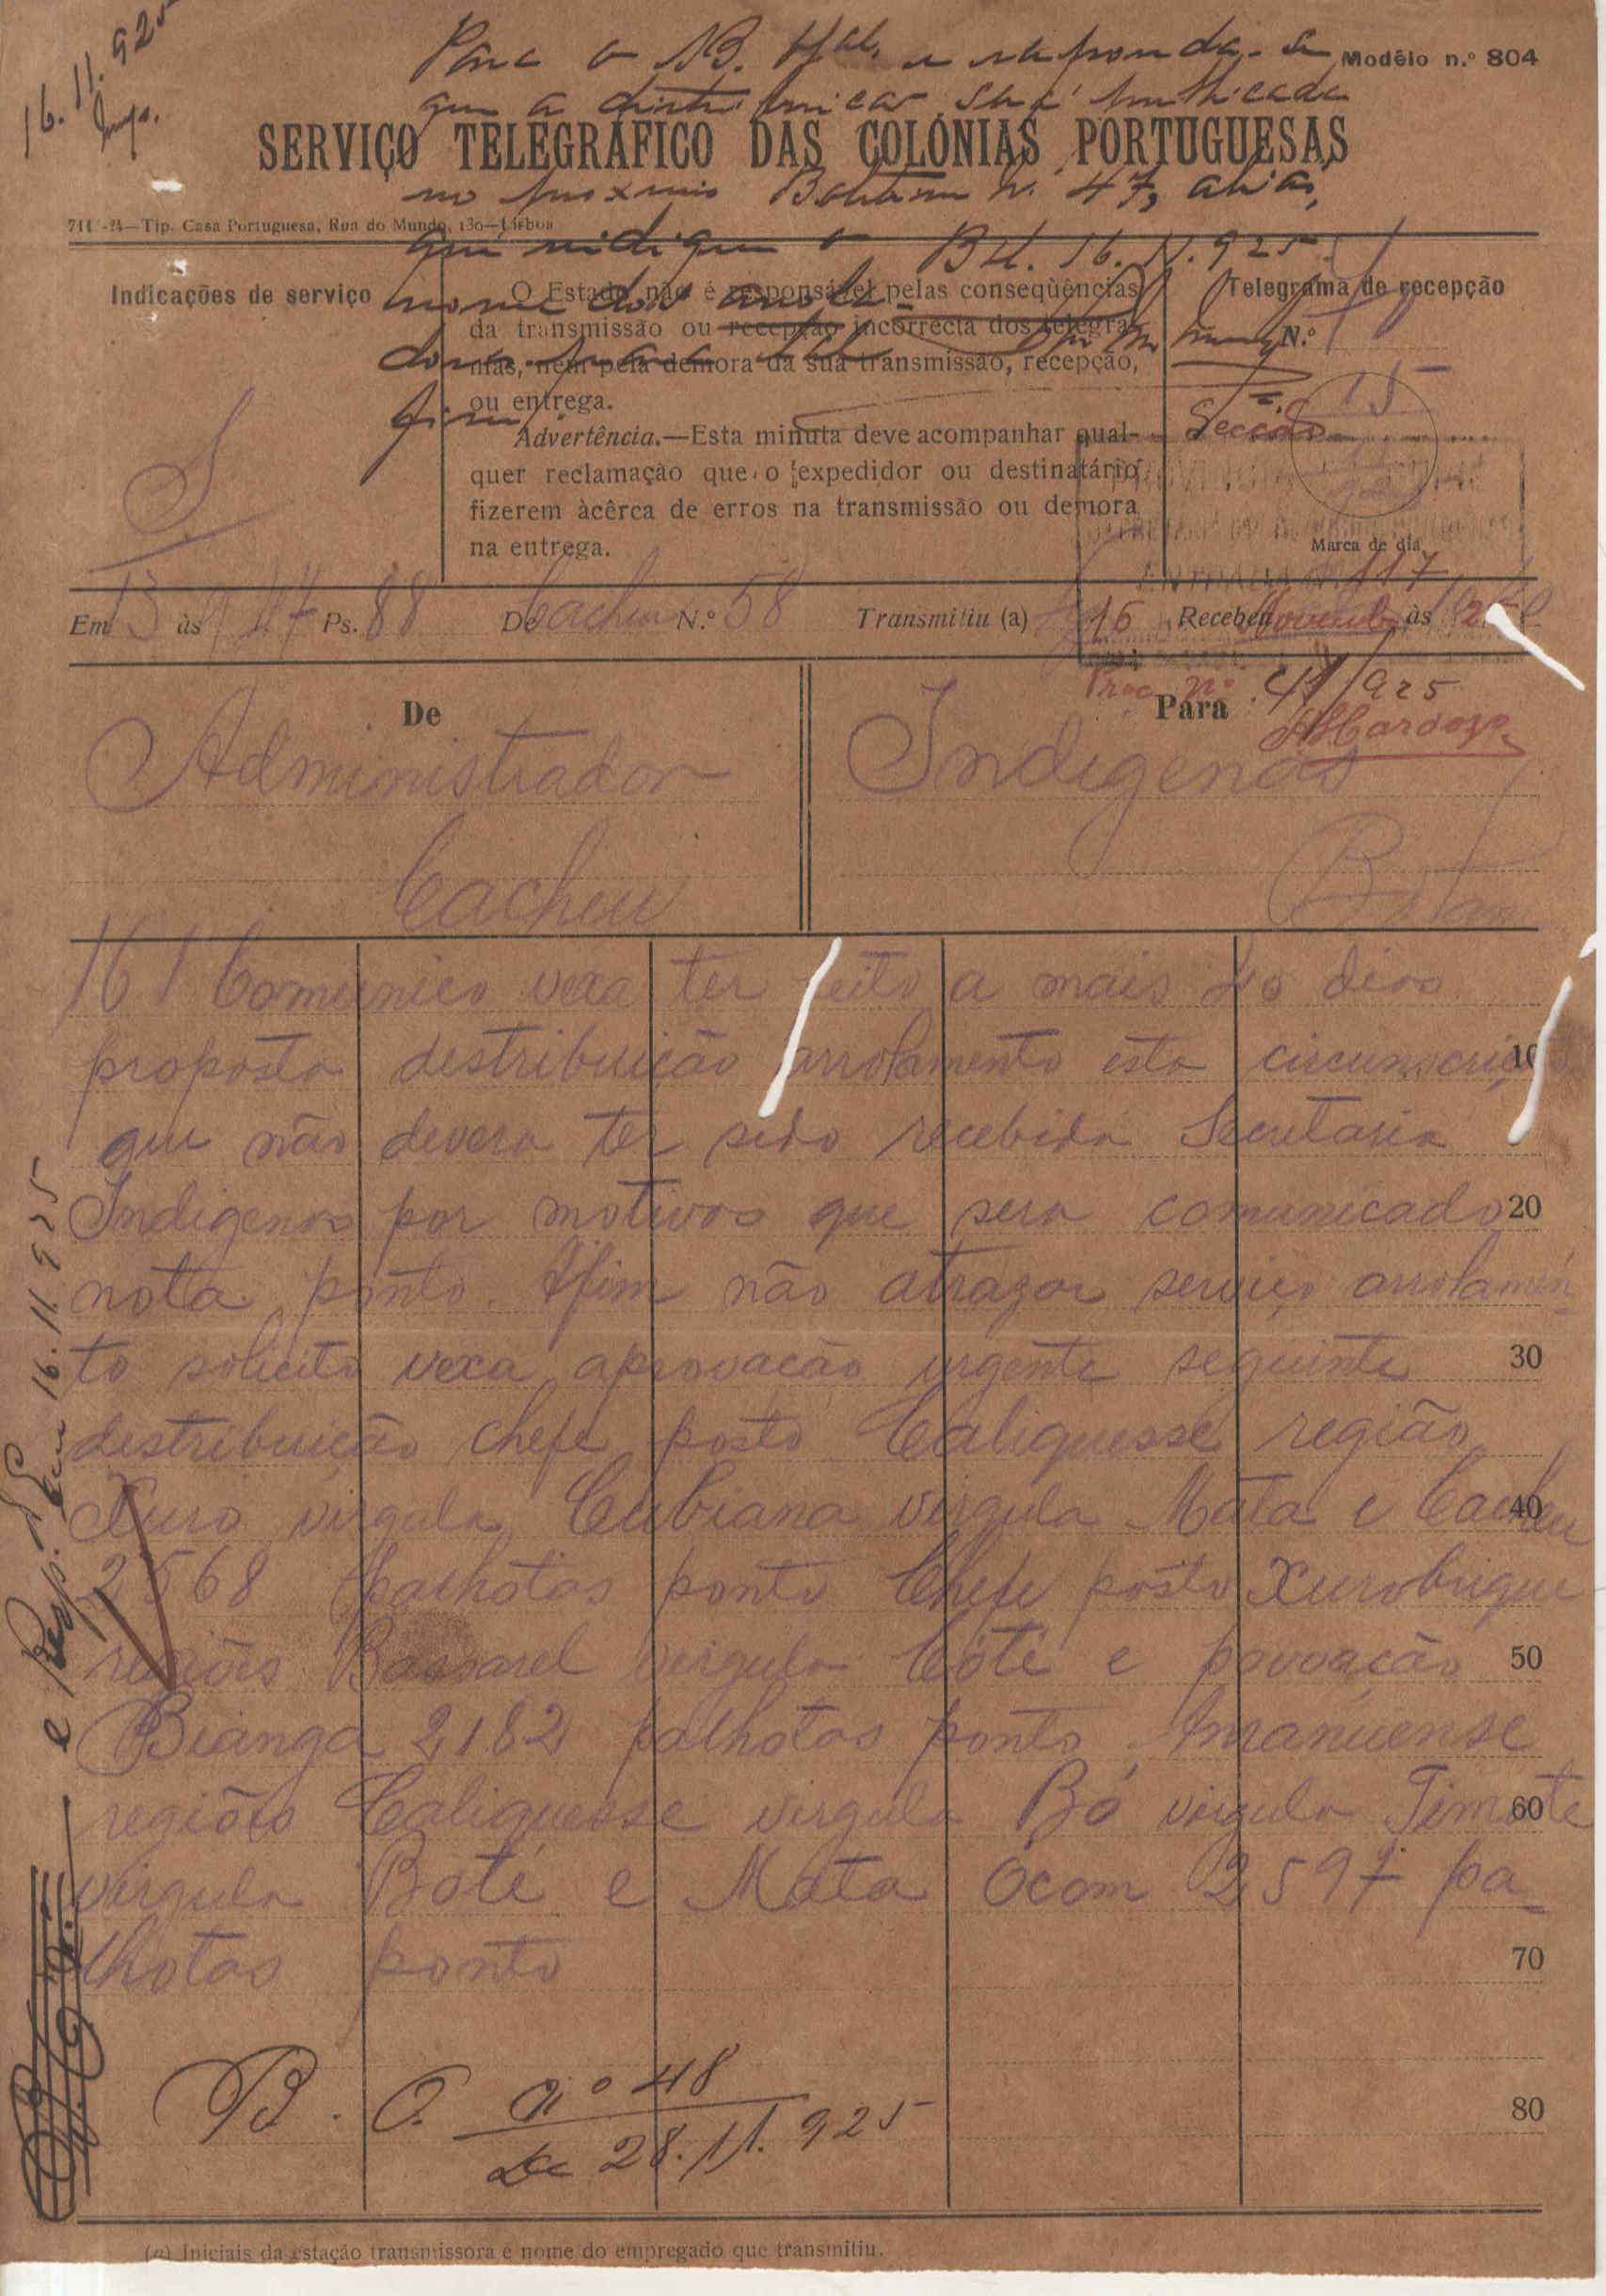 16.11.925
Para o B. Of.al e responda-se Modêlo n.º 804
que a distribuicão será publicada
SERVIÇO TELEGRÁFICO DAS COLÓNIAS PORTUGUESAS
no proximo Boletim n.º 47, aliás,
711 -24—Tip. Casa Portuguesa, Rua do Mundo, 130—Lisboa
que indique o B4. 16.11.925
Indicações de serviço
nome dos arrola-
dores para
fim
O Estado não é responsável pelas conseqùências
da transmissão ou recepção incorrecta dos telegra-
mas, nem pela demora da sua transmissão, recepção,
ou entrega.
Advertência.—Esta minuta deve acompanhar qual-
quer reclamação que o expedidor ou destinatário
fizerem àcêrca de erros na transmissão ou demora
na entrega.
Telegrama de recepção
N.º
Secção
15
Marca de dia
ENTRADA N.º 117
Em 13 às 9 17 Ps. 88 De Cacheu N.º 58 Transmitiu (a) Recebeu às
16 Novembro 25
Proc. nº 41/925
AHCardoso
De
Administrador
Cacheu
Para
Indigenas
Bolama
161 Comunico vexa ter feito a mais 20 dias
proposta destribuição arrolamento esta circunscrição 10
que não devera ter sido recebida Secretaria
Indigenas por motivos que sera comunicado 20
nota ponto. Afim não atrazar serviço arrolamen-
to solicito vexa aprovacão urgente seguinte 30
destribuicão chefe posto Caliquesse região
Xuro virgula Cubiana virgula Mata e Cacheu 40
2568 palhotas ponto Chefe posto Xurobrique
regiões Bassarel virgula Cóté e povoação 50
Bianga 2182 palhotas ponto Amanuense
regiões Caliquesse virgula Bó virgula Timate 60
virgula Boté e Mata Ócom 2597 pa-
lhotas ponto 70
80
B. O. nº 48
de 28.11.925
e Resp. Em 16.11.925
(a) Iniciais da estação transmissora e nome do empregado que transmitiu.